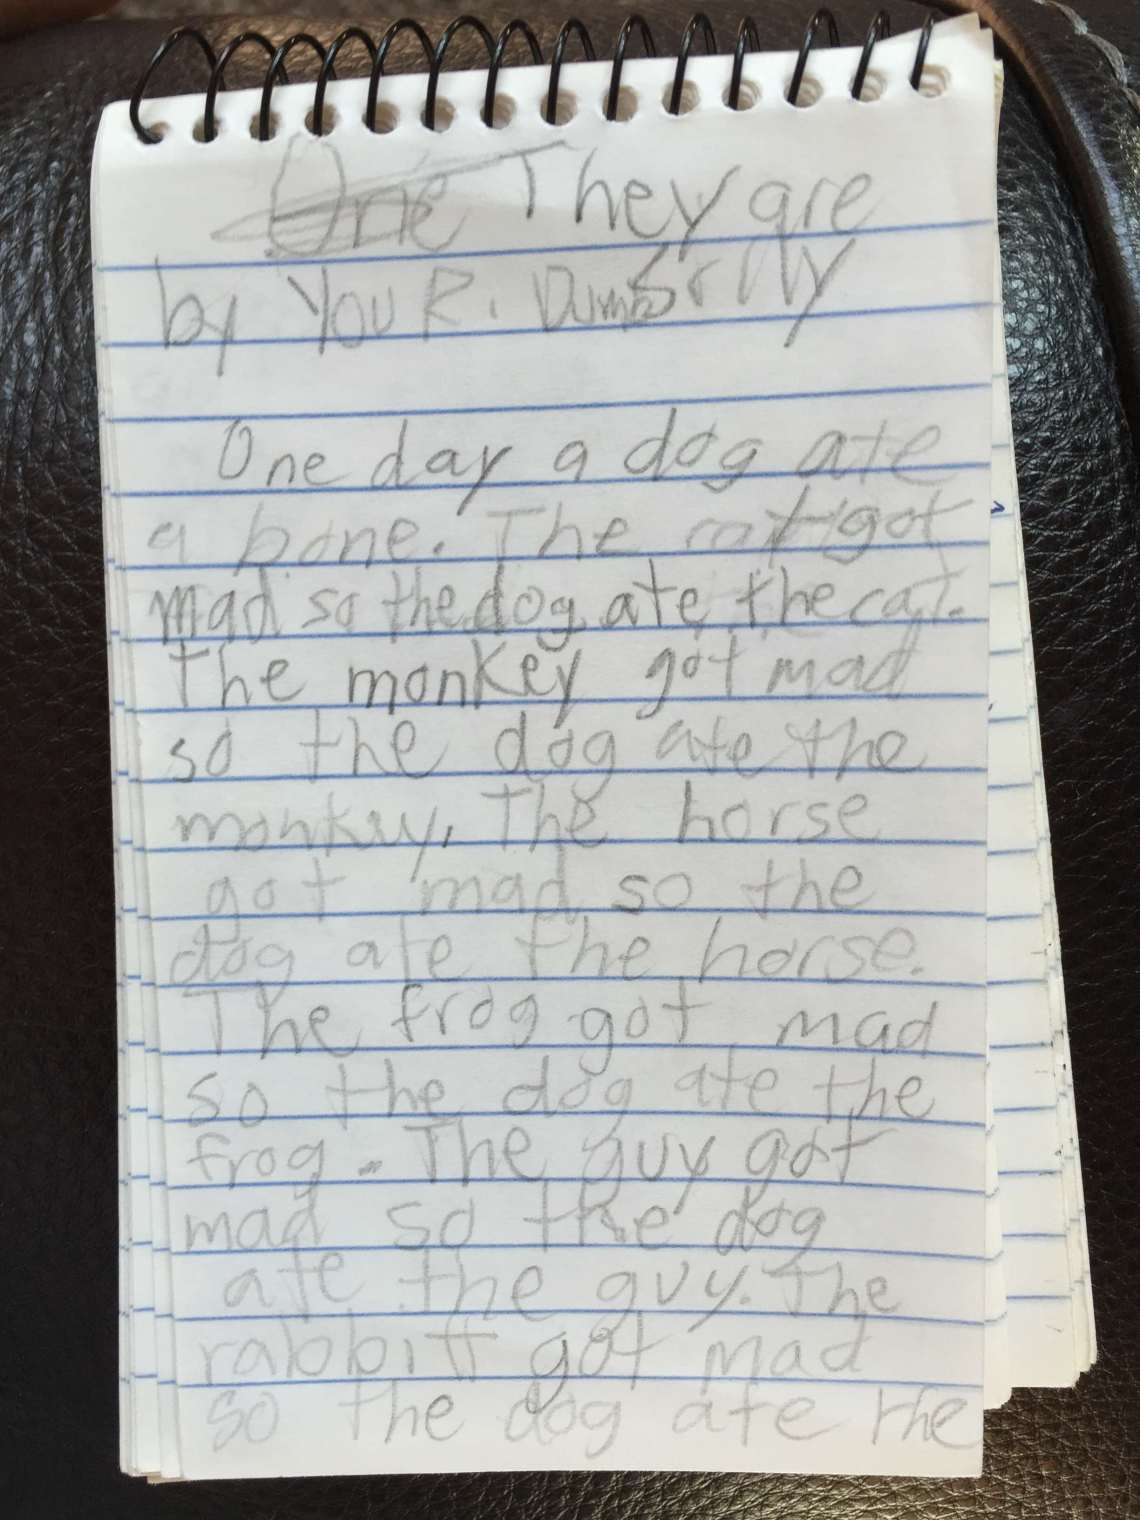 One They are
by You R. Dumb Silly
One day a dog ate
a bone. The cat got
mad so the dog ate the cat.
The monkey got mad
so the dog ate the
monkey. The horse
got mad so the
dog ate the horse.
The frog got mad
so the dog ate the
frog. The guy got
mad so the dog
ate the guy. The
rabbitt got mad
so the dog ate the